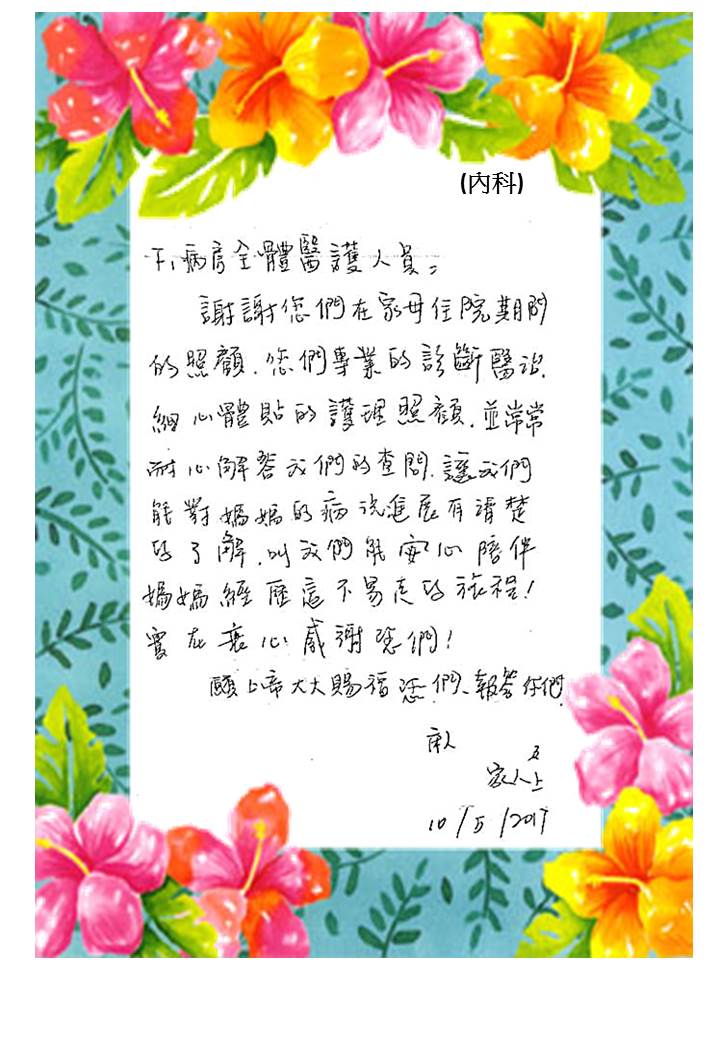 (內科)
F1病房全體醫護人員：
謝謝您們在家母住院期間
的照顧．您們專業的診斷醫治．
細心體貼的護理照顧．並常常
耐心解答我們的查問．讓我們
能對媽媽的病況進展有清楚
的了解．叫我們能安心陪伴
媽媽經歷這不易走的旅程！
實在衷心感謝您們！
願上帝大大賜福您們、報答你們．
病人
及
家人上
10/5/2017